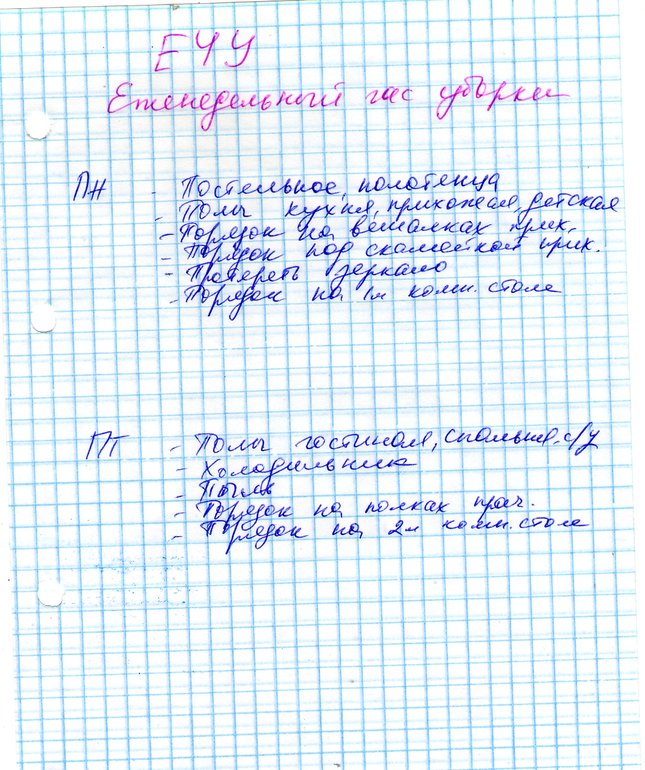 ЕЧУ
Еженедельный час уборки
ПН - Постельное, полотенца
- Полы кухня, прихожая, детская
- Порядок на вешалках прих.
- Порядок под скамейкой прих.
- Протереть зеркало
- Порядок на 1м комп. столе
ПТ - Полы гостиная, спальня, с/у
- Холодильник
- Пыль
- Порядок на полках прач.
- Порядок на 2м комп. столе